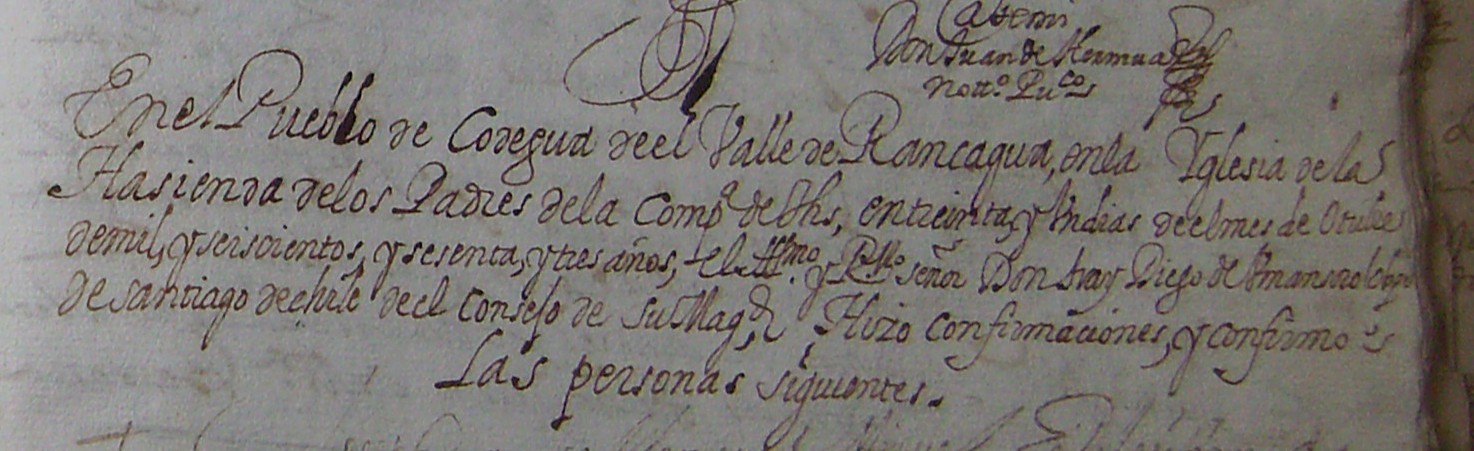 Ante mi
Don Juan de Hermua
Nott.o Pu.co
En el Pueblo de Codegua de el Valle de Rancagua, en la Yglesia de la
Hasienda de los Padres de la Comp.a de Jhs, en treinta, y un dias de el mes de Otubre
de mil, y seiscientos, y sesenta, y tres años, el Ill.mo y R.mo señor Don fray Diego de Umansoro obispo
de santiago de chile de el Consejo de su Mag.d Hizo confirmaciones, y confirmo
Las personas siguientes.